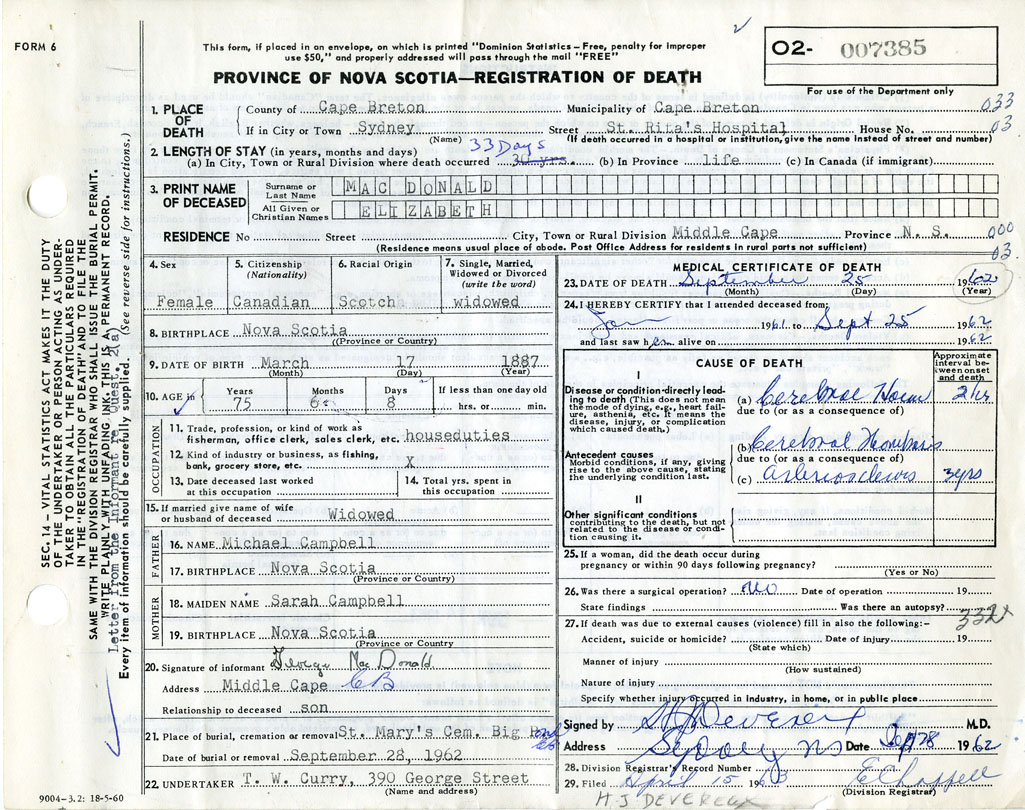 FORM 6
This form, if placed in an envelope, on which is printed "Dominion Statistics – Free, penalty for improper
use $50," and properly addressed will pass through the mail "FREE"
PROVINCE OF NOVA SCOTIA—REGISTRATION OF DEATH
O2- 007385
For use of the Department only
033
03
1. PLACE OF DEATH
County of Cape Breton Municipality of Cape Breton
If in City or Town Sydney Street St. Rita's Hospital House No.
(Name) (If death occurred in a hospital or institution, give the name instead of street and number)
2. LENGTH OF STAY (in years, months and days) 33 Days
(a) In City, Town or Rural Division where death occurred 30 yrs. (b) In Province life (c) In Canada (if immigrant)
3. PRINT NAME OF DECEASED
Surname or Last Name MAC DONALD
All Given or Christian Names ELIZABETH
RESIDENCE No Street City, Town or Rural Division Middle Cape Province N. S.
(Residence means usual place of abode. Post Office Address for residents in rural parts not sufficient)
000
03.
4. Sex Female
5. Citizenship (Nationality) Canadian
6. Racial Origin Scotch
7. Single, Married, Widowed or Divorced (write the word) widowed
8. BIRTHPLACE Nova Scotia
(Province or Country)
9. DATE OF BIRTH March 17 1887
(Month) (Day) (Year)
10. AGE in Years 75 Months 6 Days 8 If less than one day old
hrs. or min.
OCCUPATION
11. Trade, profession, or kind of work as
fisherman, office clerk, sales clerk, etc. houseduties
12. Kind of industry or business, as fishing,
bank, grocery store, etc. X
13. Date deceased last worked
at this occupation
14. Total yrs. spent in
this occupation
15. If married give name of wife
or husband of deceased Widowed
FATHER
16. NAME Michael Campbell
17. BIRTHPLACE Nova Scotia
(Province or Country)
MOTHER
18. MAIDEN NAME Sarah Campbell
19. BIRTHPLACE Nova Scotia
(Province or Country)
20. Signature of informant George MacDonald
Address Middle Cape CB
Relationship to deceased son
21. Place of burial, cremation or removal St. Mary's Cem. Big Pond CB
Date of burial or removal September 28, 1962
22. UNDERTAKER T. W. Curry, 390 George Street
(Name and address)
9004–3.2: 18-5-60
MEDICAL CERTIFICATE OF DEATH
23. DATE OF DEATH September 25 1962
(Month) (Day) (Year)
24. I HEREBY CERTIFY that I attended deceased from:
Jan 1961 to Sept 25 1962
and last saw her alive on 1962
CAUSE OF DEATH
Approximate interval between onset and death
I
Disease or condition directly leading to death (This does not mean the mode of dying, e.g., heart failure, asthenia, etc. It means the disease, injury, or complication which caused death.)
(a) Cerebrae Hem 2 hr
due to (or as a consequence of)
Antecedent causes
Morbid conditions, if any, giving rise to the above cause, stating the underlying condition last.
(b) Cerebral
due to (or as a consequence of)
(c) 3 yrs
II
Other significant conditions
contributing to the death, but not related to the disease or condition causing it.
25. If a woman, did the death occur during
pregnancy or within 90 days following pregnancy?
(Yes or No)
26. Was there a surgical operation? No Date of operation 19
State findings Was there an autopsy?
332X
27. If death was due to external causes (violence) fill in also the following:–
Accident, suicide or homicide? Date of injury 19
(State which)
Manner of injury
(How sustained)
Nature of injury
Specify whether injury occurred in industry, in home, or in public place
Signed by HJ Devereux M.D.
Address Sydney NS Date Sept 28 1962
28. Division Registrar's Record Number
29. Filed April 15 1963 E Chappell
(Division Registrar)
H J DEVEREUX
SEC. 14 – VITAL STATISTICS ACT MAKES IT THE DUTY
OF THE UNDERTAKER OR PERSON ACTING AS UNDER-
TAKER TO OBTAIN ALL THE PARTICULARS REQUIRED
IN THE "REGISTRATION OF DEATH" AND TO FILE THE
SAME WITH THE DIVISION REGISTRAR WHO SHALL ISSUE THE BURIAL PERMIT.
WRITE PLAINLY WITH UNFADING INK. THIS IS A PERMANENT RECORD.
Letter from the Informant re Quest. 2(a)
Every item of information should be carefully supplied. (See reverse side for instructions.)